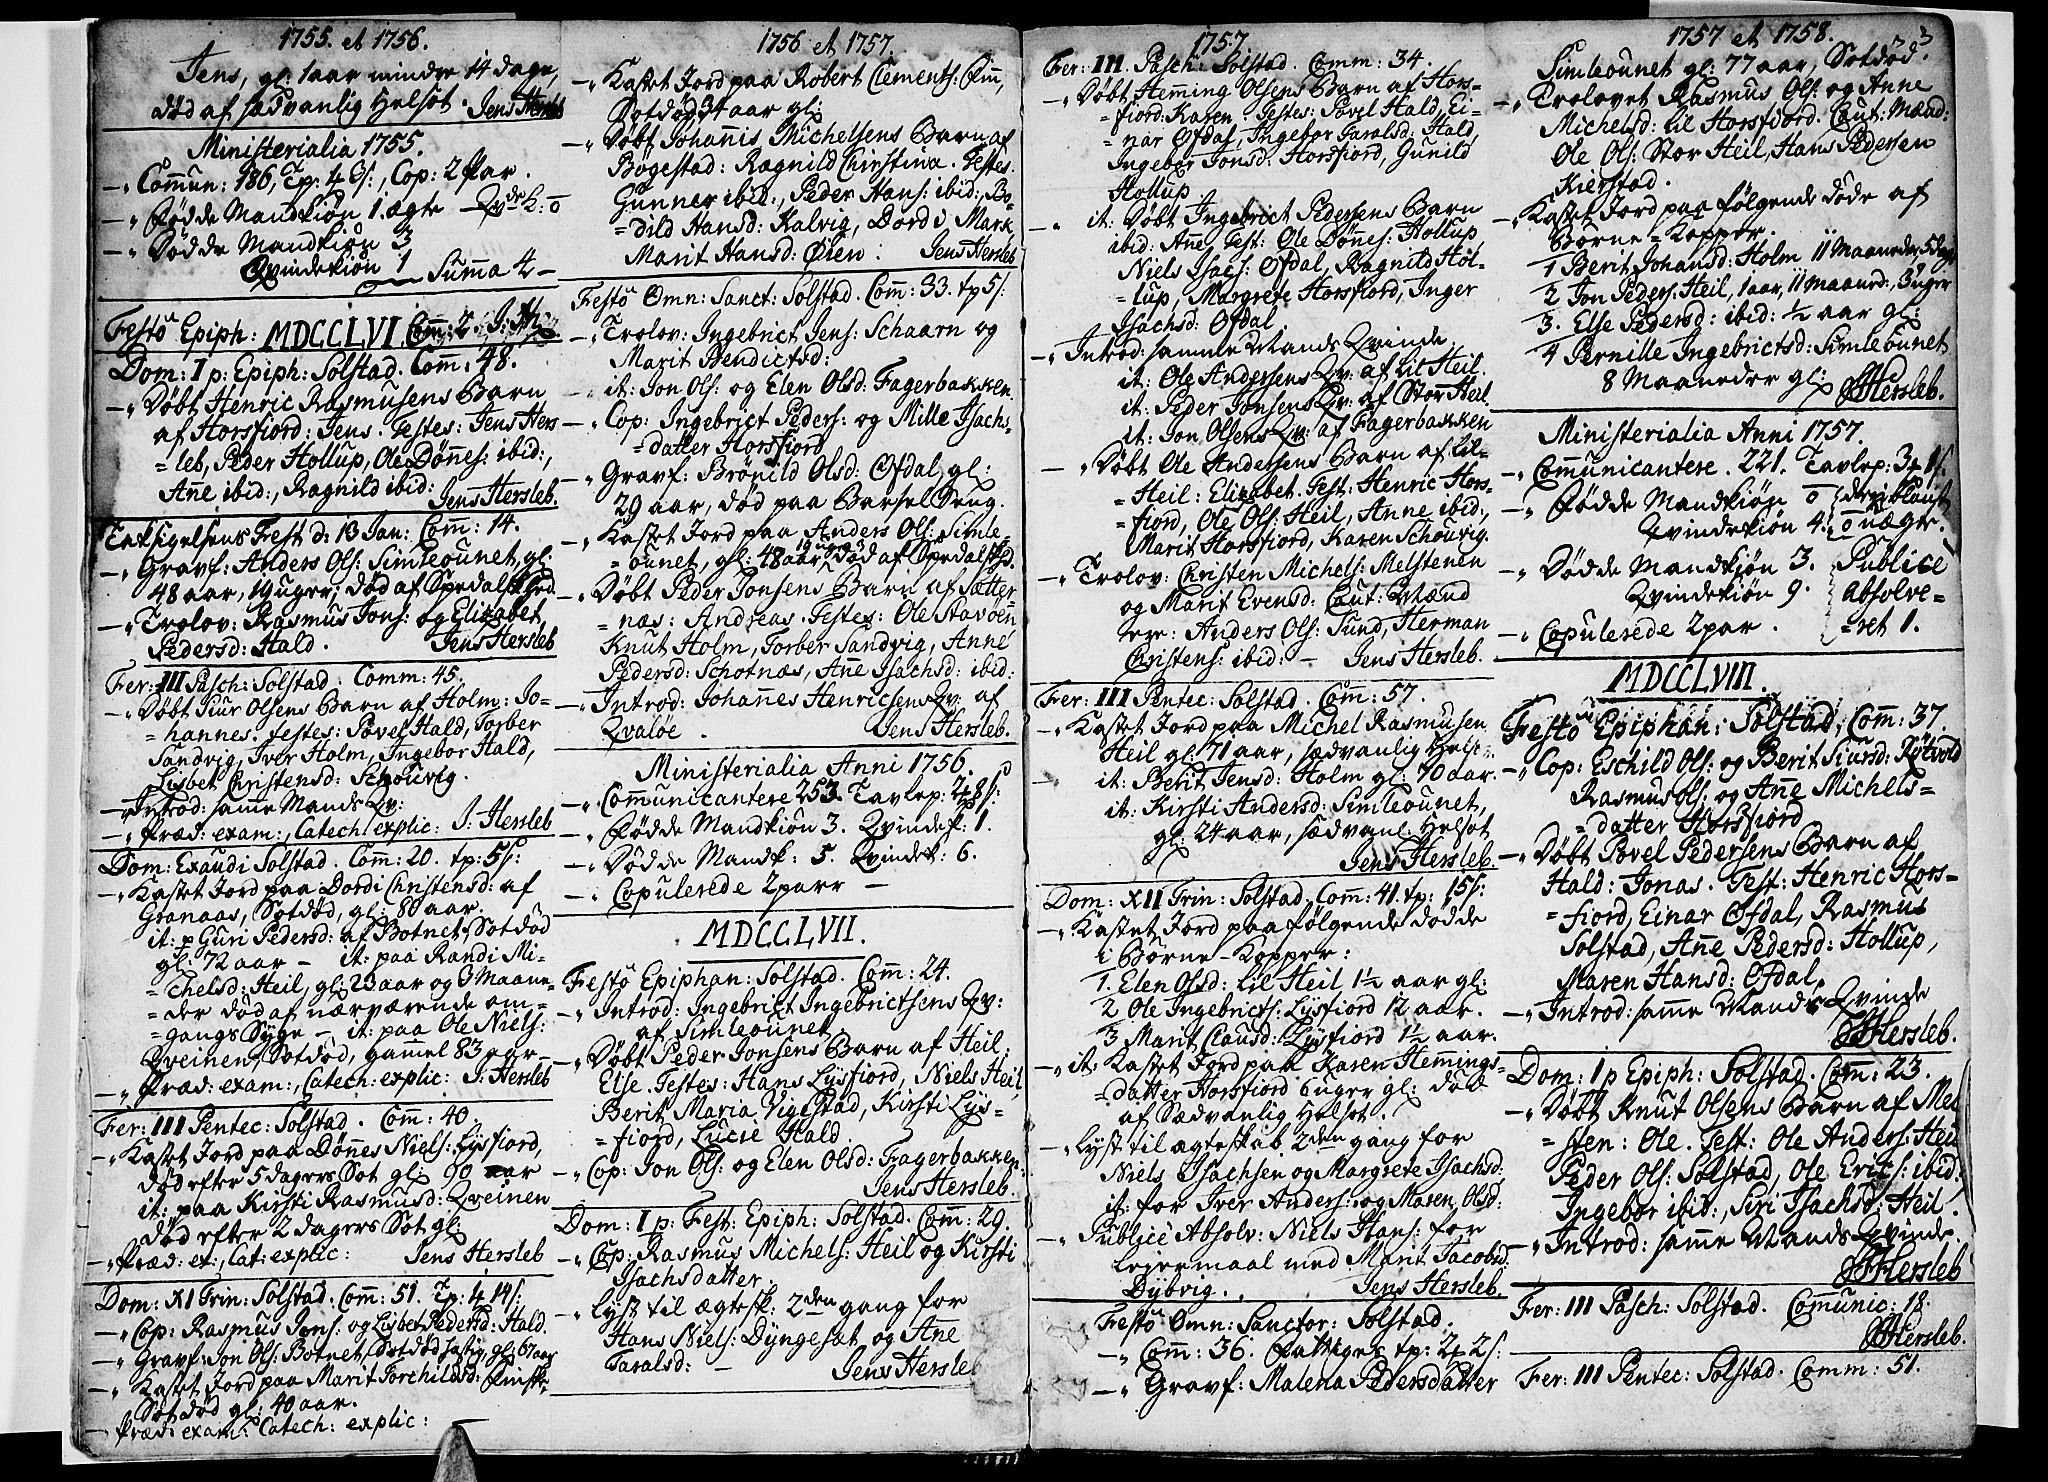 1755. et 1756.
Jens, gl: 1 aar mindre 14 dage,
død af sædvanlig Helsot. Jens Hersleb
Ministerialia 1755.
Commun: 186, Tp: 4 ß:, Cop: 2 Par.
Fødde Mandkiøn 1. ægte
Dødde Mandkiøn 3
Qvindekiøn 1 Summa 4
Festo Epiph: MDCCLVI. Comm: 2
Dom: I p: Epiph: Solstad. Com̄: 48.
Døbt Henric Rasmusens Barn
af Horsfiord: Jens. Testes: Jens Hers
=leb, Peder Hollup, Ole Dønnes: ibid:,
Añe ibid:, Ragnild ibid: Jens Hersleb.
Taksigelsens Fest d: 13 Jan: Com̄: 14.
Gravf: Anders Ols: Simleøunet, gl:
48 aar, 14 uger, død af Spedalskhed
Trolov: Rasmus Jons: og Elizabet
Pedersd: Hald. Jens Hersleb
Fer: III Pasch: Solstad. Comm: 45.
Døbt Siur Olsens Barn af Holm: Jo-
=hannes. Testes: Povel Hald, Torber
Sandvig, Iver Holm, Ingebor Hald,
Lisbet Christensd: Schouvig.
Introd: samme Mands Qv:
Præd: exam:, Catech: explic: J: Hersleb
Dom: Exaudi Solstad. Com̄: 20. tp: 5 ß:
Kastet Jord paa Dordi Christensd: af
Granaas, Sotdød, gl: 80 aar.
it: p Guri Pedersd: af Botnet, Sotdød
gl: 72 aar - it: paa Randi Mi-
=chelsd: Heil, gl: 23 aar og 3 Maane-
=der død af nærværende om-
=gangs Syge - it: paa Ole Niels:
Qveinen, Sotdød, gammel 83 aar
Præd: exam:, Catech: explic: J: Hersleb
Fer: III Pentec: Solstad. Com̄: 40.
Kastet Jord paa Dønnes Niels: Lysfiord,
død efter 5 dagers Sot gl: 90 aar
it: paa Kirsti Rasmusd: Qveinen
død efter 2 dagers Sot gl:
Præd: ex:, Cat: explic: Jens Hersleb
Dom: XI Trin: Solstad. Com̄: 51. Tp: 4 14 ß:
Cop: Rasmus Jons: og Lisbet Pedersd: Hald.
Gravf: Jon Ols: Botnet, Sotdød hastig, gl: 67 aar
Kastet Jord paa Marit Torchildsd: Finske,
Sotdød gl: 40 aar.
Præd: exam: Catech: explic:
1756 et 1757.
Kastet Jord paa Robert Clements: Fin,
Sotdød, 34 aar gl:
Døbt Johannis Michelsens Barn af
Bøgestad: Ragnild Christina. Testes:
Gunner ibid:, Peder Hans: ibid:, Bo-
=dild Hansd: Kalvig, Dordi Mark
Marit Hansd: Øien: Jens Hersleb
Festo Omn: Sanct: Solstad. Com̄: 33. tp 5 ß:
Trolov: Ingebrict Jens: Schaarn og
Marit Bendictsd:
it: Jon Ols: og Elen Olsd: Fagerbakken
Cop: Ingebrict Peders: og Mille Isachs-
=datter Horsfiord
Gravf: Brønild Olsd: Øfdal gl:
29 aar, død paa Barsel Seng.
Kastet Jord paa Anders Ols: Simle-
=øunet, gl: 48 aar 14 uger, Død af Spedalskhd.
Døbt Peder Jonsens Barn af Sætter
=næs: Andreas. Testes: Ole Stavøen
Knut Holm, Torber Sandvig, Anne
Pedersd: Schotnæs, Añe Isachsd: ibid:
Introd: Johannes Henricsens Qv: af
Qvaløe. Jens Hersleb.
Ministerialia Anni 1756.
Communicantere 253. Tavlep: 2 4 8 ß:
Fødde Mandkiøn 3. Qvindek: 1.
Dødde Mandk: 5. Qvindek: 6.
Copulerede 2 parr
MDCCLVII.
Festo Epiphan: Solstad. Com̄: 24.
Introd: Ingebrict Ingebrictsens Qv:
af Simleøunet.
Døbt Peder Jonsens Barn af Heil:
Else. Testes: Hans Lysfiord, Niels Heil,
Berit Maria Vigestad, Kirsti Lys=
=fiord, Lucie Hald.
Cop: Jon Ols: og Elen Olsd: Fagerbakken:
Jens Hersleb.
Dom: I p: Fest: Epiph: Solstad. Com̄: 29.
Cop: Rasmus Michels: Heil og Kirsti
Isachsdatter.
Lyst til ægtesk: 2den gang for
Hans Niels: Dyngesat, og Añe
Taralsd: Jens Hersleb
1757.
Fer: III Pasch: Solstad. Comm: 34.
Døbt Hemming Olsens Barn af Hors-
=fiord: Karen. Testes: Povel Hald, Ei-
=nar Øfdal, Ingebor Taralsd: Hald,
Ingebor Jonsd: Horsfiord, Gunild
Hollup
it: Døbt Ingebrict Pedersens Barn
ibid: Añe Test: Ole Dønnes: Hollup,
Niels Isachs: Øfdal, Ragnild Hol-
=lup, Margrete Horsfiord, Inger
Isachsd: Øfdal
Introd: samme Mands Qvinde.
it: Ole Andersens Qv: af Lil Heil.
it: Peder Jonsens Qv: af Stor Heil.
it: Jon Olsens Qv: af Fagerbakken
Døbt Ole Andersens Barn af Lil-
=Heil: Elizabet. Test: Henric Hors-
=fiord, Ole Ols: Heil, Anne ibid:,
Marit Horsfiord, Karen Schouvig.
Trolov: Christen Michels: Melstenen
og Marit Evensd: Caut: Mænd
ere: Anders Ols: Sund, Herman
Christens: ibid: - Jens Hersleb.
Fer: III Pentec: Solstad. Com: 57.
Kastet Jord paa Michel Rasmusen
Heil gl: 71 aar, sædvanlig Helsot:
it: Berit Jensd: Holm gl: 70 aar.
it: Kirsti Andersd: Simleøunet,
gl: 24 aar, sædvanl. Helsot
Jens Hersleb.
Dom: XII Trin: Solstad, Com̄: 41. tp: 15 ß:
Kastet Jord paa følgende dødde
i Børne-Kopper:
1. Elen Olsd: Lil Heil 1½ aar gl:
2 Ole Ingebricts: Lysfiord 12 aar.
3 Marit Clausd: Lysfiord 1½ aar.
it: Kastet Jord paa Karen Hemmings-
=datter Horsfiord 6 uger gl: død
af Sædvanlig Helsot.
Lyst til ægteskab 2den gang for
Niels Isachsen og Margrete Isachsd:
it: for Iver Anders: og Maren Olsd:
Publice Absolv: Niels Hans: for
Leiermaal med Marit Jacobsd:
Dybvig. Jens Hersleb.
Festo Omn: Sanctor: Solstad.
Com̄: 36. Fattiges tp: 2 4 2 ß:
Gravf: Malena Pedersdatter
1757 et 1758. 3
Simleøunet gl: 77 aar, Sotdød.
Trolovet Rasmus Ols: og Anne
Michelsd: Lil Horsfiord. Caut: Mænd:
Ole Ols: Stor Heil, Hans Pedersen
Kierstad.
Kastet Jord paa følgende døde af
Børne-Kopper.
1 Berit Johansd: Holm 11 Maaneder 5 dage
2 Jon Peders: Heil, 1 aar, 11 Maand:, 3 uger
3. Else Pedersd: ibid: ½ aar gl:
4 Pernille Ingebrictsd: Simleøunet
8 Maaneder gl: JHersleb.
Ministerialia Anni 1757.
Communicantere. 221. Tavlep: 3 4 1 ß.
Fødde Mandkiøn 0 deriblant
Qvindekiøn 4. 0 uægte.
Dødde Mandkiøn 3. Publice
Qvindekiøn 9. Absolve=
Copulerede 2 par. =ret 1.
MDCCLVIII.
Festo Epiphan: Solstad. Com̄: 37.
Cop: Eschild Ols: og Berit Siursd: Røtvold
Rasmus Ols: og Añe Michels=
=datter Horsfiord
Døbt Povel Pedersens Barn af
Hald: Jonas. Test: Henric Hors-
=fiord, Einar Øfdal, Rasmus
Solstad, Añe Pedersd: Hollup,
Maren Hansd: Øfdal,
Introd: samme Mands Qvinde
JHersleb.
Dom: I p Epiph: Solstad. Com̄: 23.
Døbt Knut Olsens Barn af Mel
=sten: Ole. Test: Ole Anders: Heil
Peder Ols: Solstad, Ole Erics: ibid:,
Ingebor ibid:, Siri Isachsd: Heil.
Introd: samme Mands Qvinde.
JHersleb
Fer: III Pasch: Solstad. Communic: 18.
JHersleb.
Fer: III Pentec: Solstad. Comm: 51.